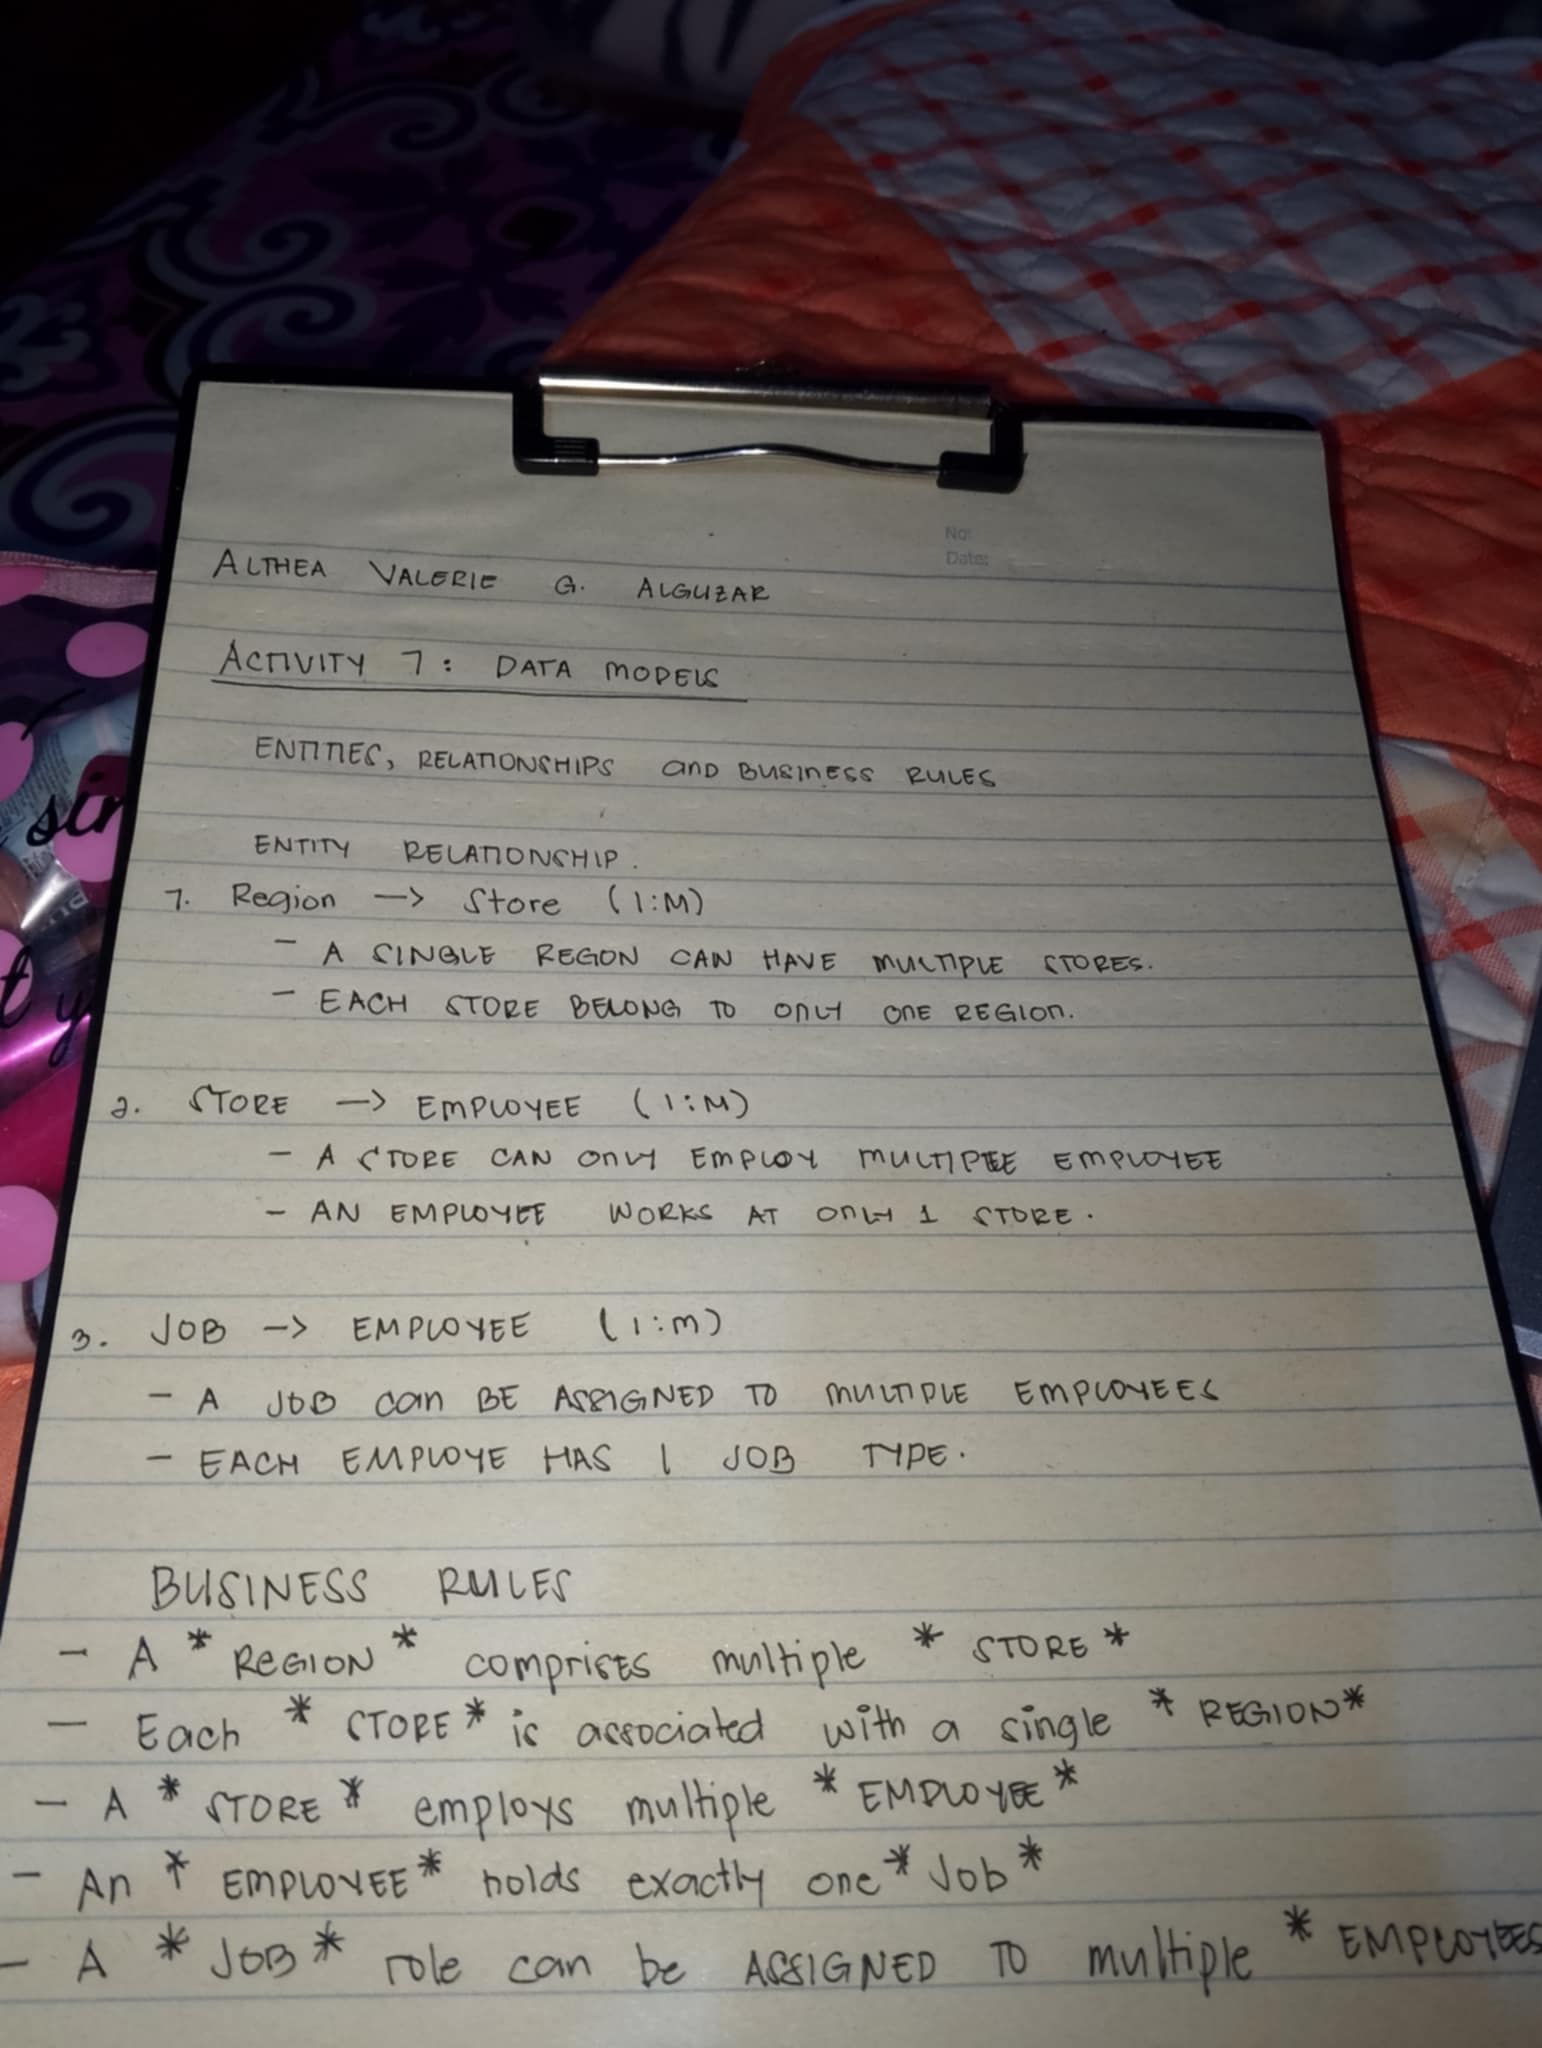 No:
Date:
ALTHEA VALERIE G. ALGUZAR
ACTIVITY 7: DATA MODELS
ENTITIES, RELATIONSHIPS and BUSINESS RULES
ENTITY RELATIONSHIP.
1. Region -> Store (1:M)
- A SINGLE REGON CAN HAVE MULTIPLE STORES.
- EACH STORE BELONG TO ONLY ONE REGION.
2. STORE -> EMPLOYEE (1:M)
- A STORE CAN ONLY EMPLOY MULTIPLE EMPLOYEE
- AN EMPLOYEE WORKS AT ONLY 1 STORE.
3. JOB -> EMPLOYEE (1:M)
- A JOB can BE ASSIGNED TO MULTIPLE EMPLOYEES
- EACH EMPLOYE HAS 1 JOB TYPE.
BUSINESS RULES
- A * REGION * comprises multiple * STORE *
- Each * STORE * is associated with a single * REGION *
- A * STORE * employs multiple * EMPLOYEE *
- An * EMPLOYEE * holds exactly one * Job *
- A * JOB * role can be ASSIGNED TO multiple * EMPLOYEES